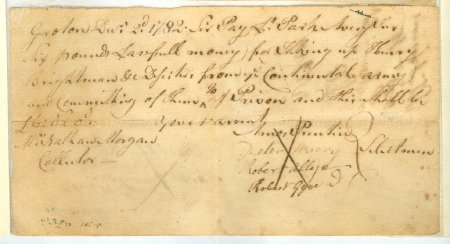 Groton Dec 2d 1782 Sir Pay Lt Park Avery Jur
Six pounds Lawfull money for Taking up Henry
Brightman a Deserter from ye Continental army
and Committing of Him to Prison and this shall be
£6:0:0 Your warrant
Mr Nathan Morgan
Collector
Amos Prentice
Peter Avery
Robert Allyn Selectmen
Robert Geer